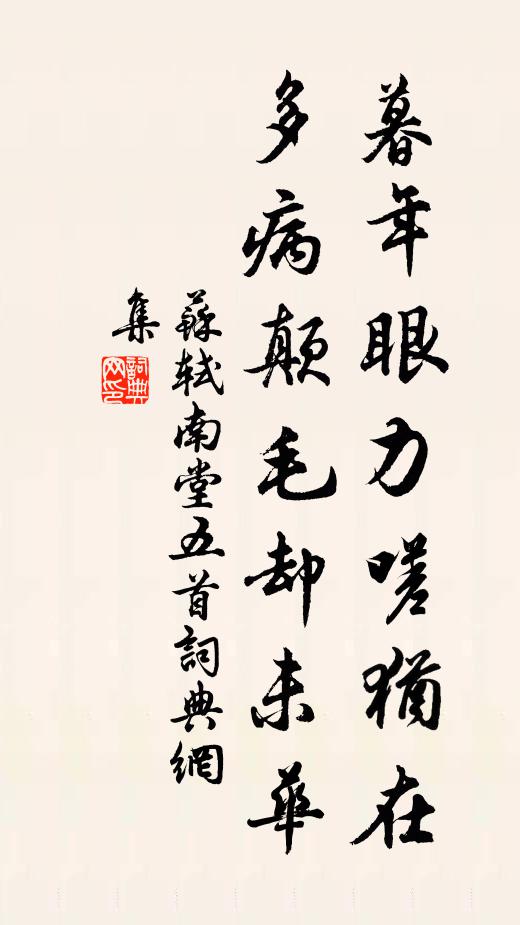 暮年眼力嗟猶在
多病顛毛却未華
蘇軾南堂五首詞典網
集
詞典
网印